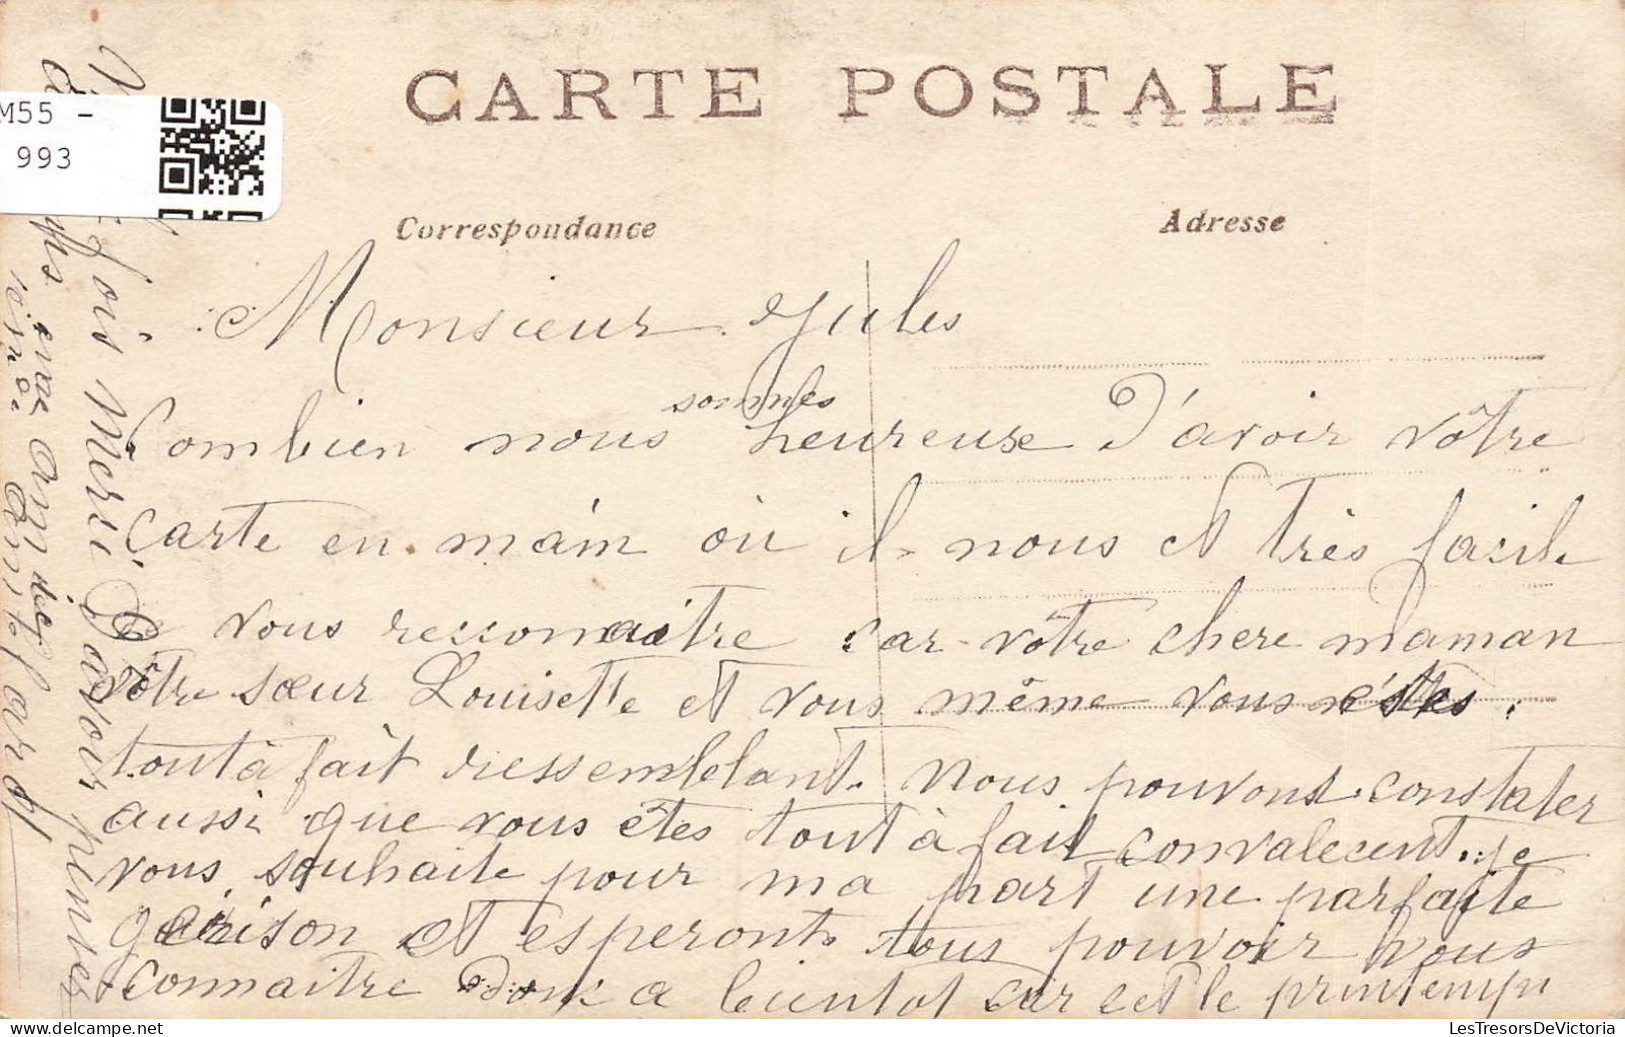 CARTE POSTALE
M55 -
993
Correspondance
Adresse
Monsieur Jules
sommes
Combien nous heureuse D'avoir vôtre
Carte en main où il nous et très facile
De vous ressonnaitre car vôtre chere maman
vôtre sœur Louisette et vous même vous n'êstes
tout à fait ressemblant. Nous pouvons constater
aussi que vous êtes tout à fait convalecent. je
vous souhaite pour ma part une parfaite
guérison et esperont tous pouvoir vous
connaitre Donc a bientot car c'est le printemps
fois Merci D'avoir penser
une Amie
LesTresorsDeVictoria